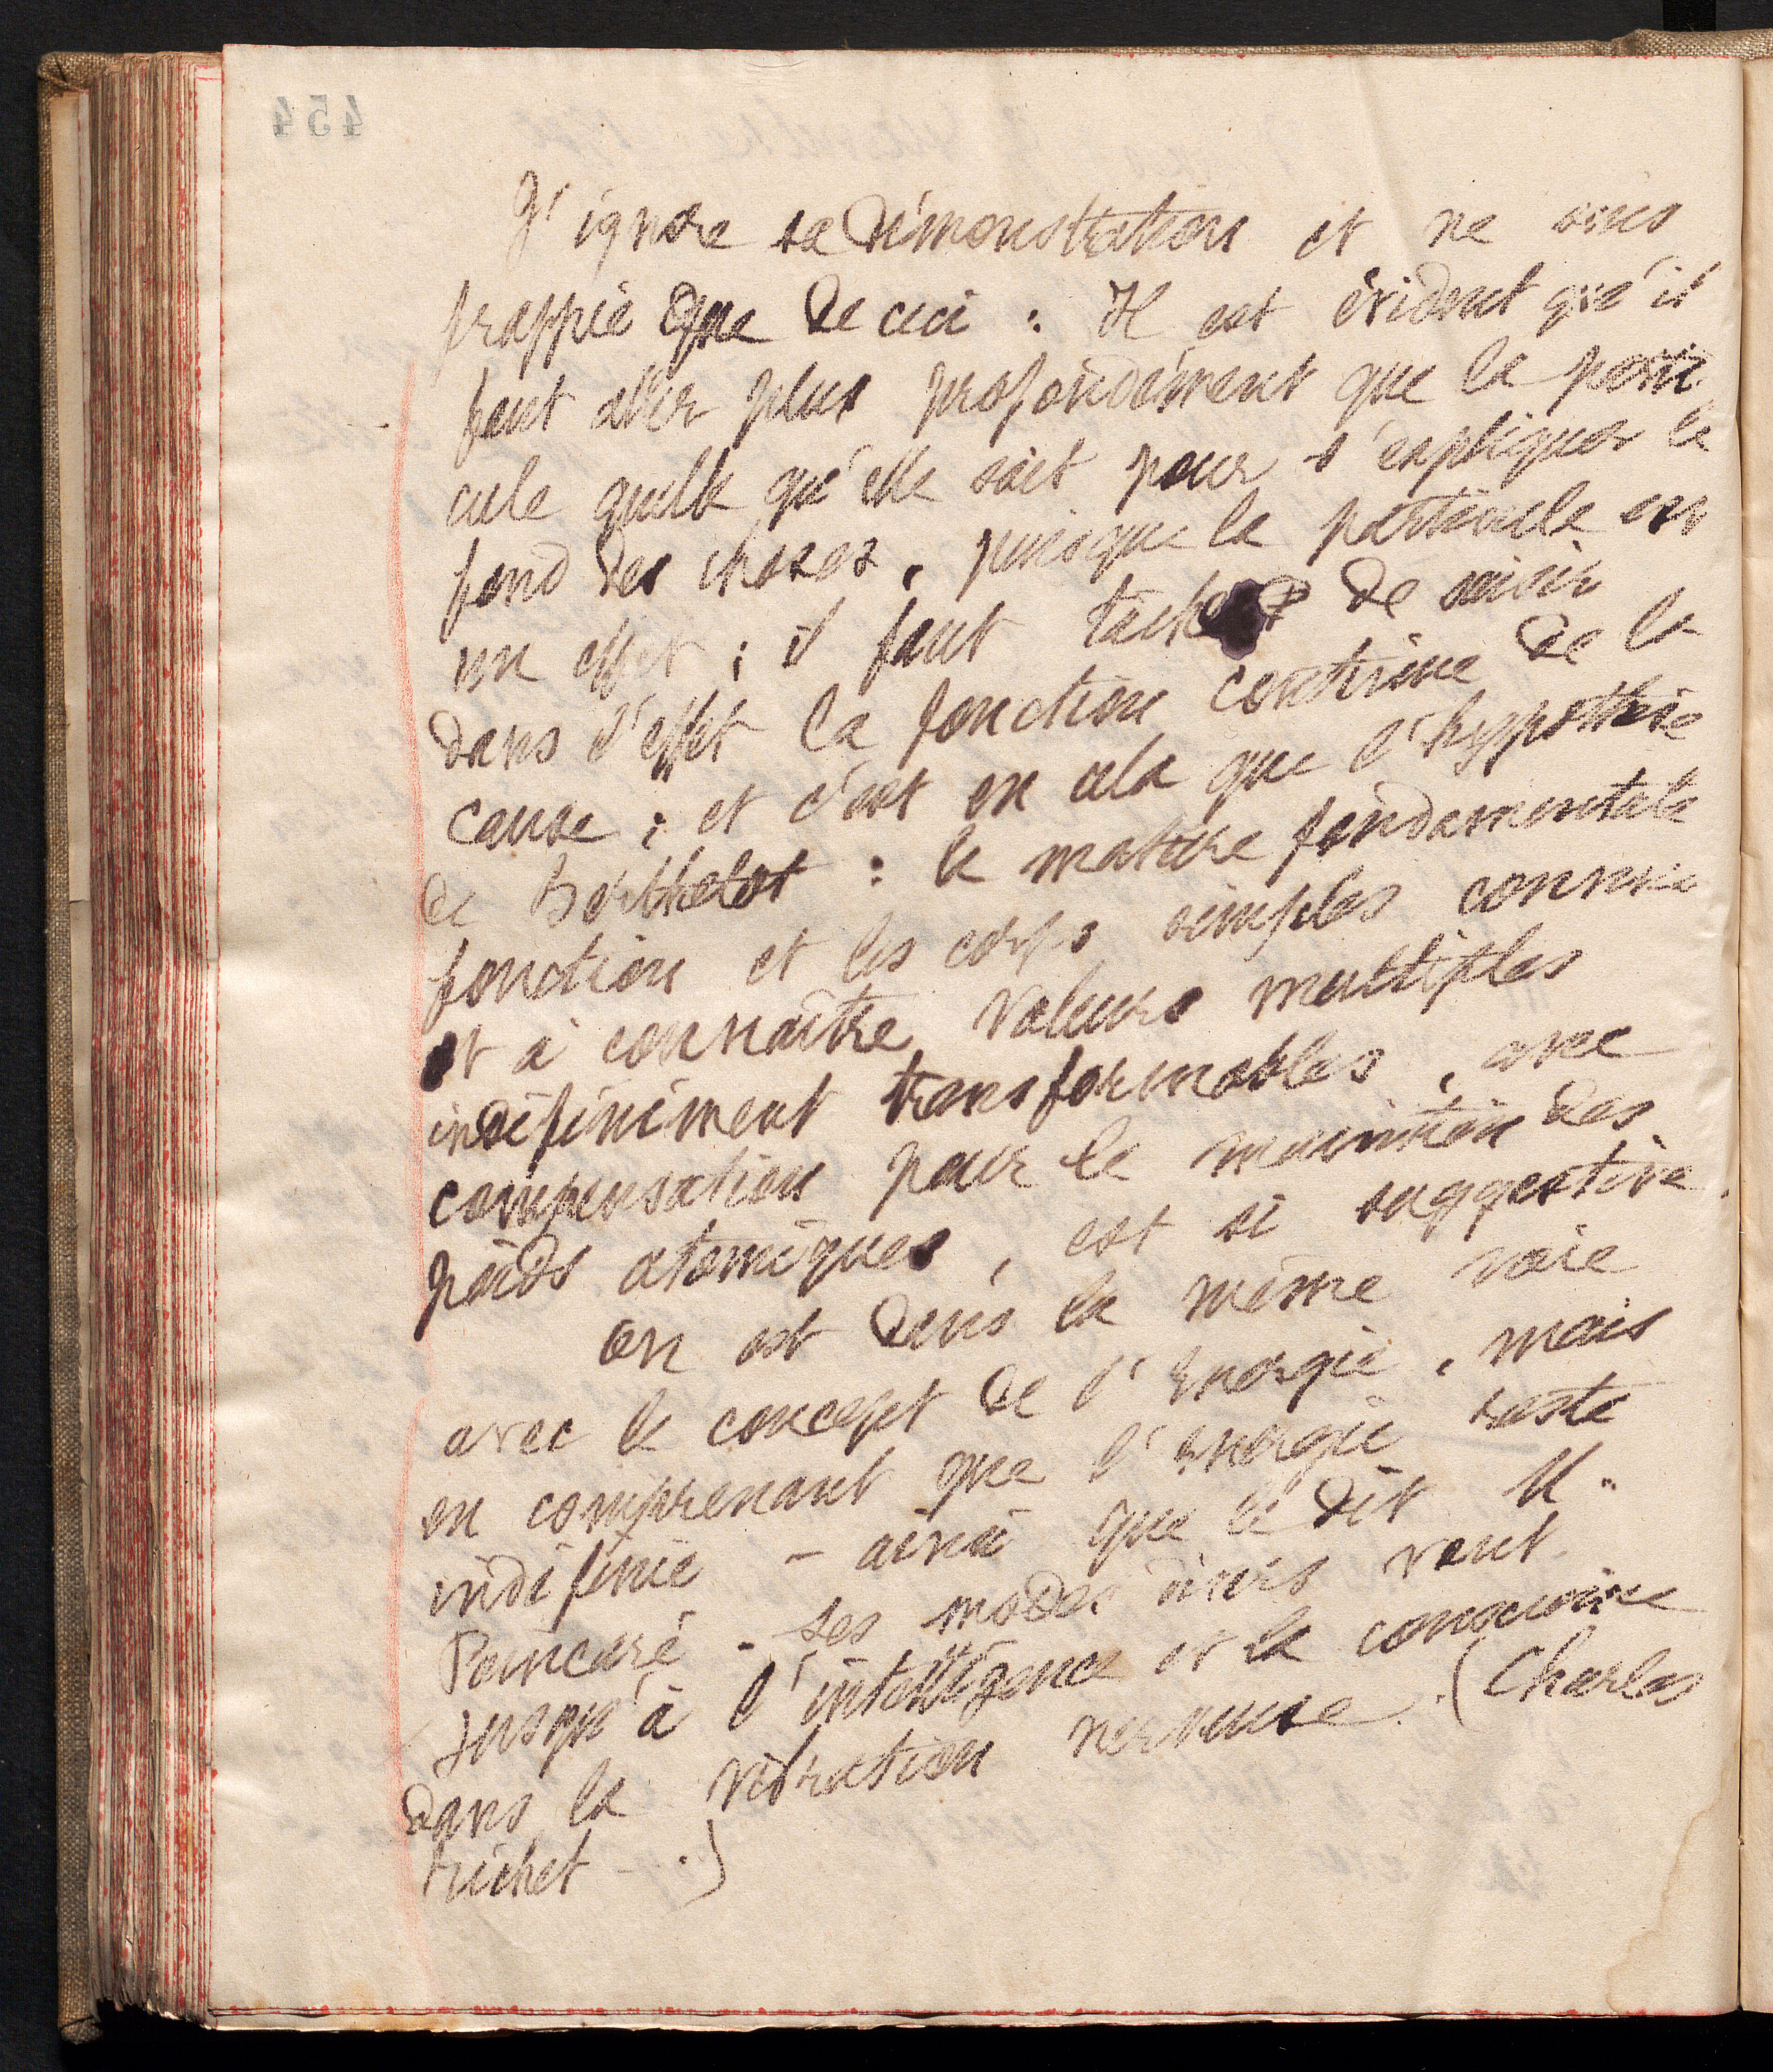 454
J'ignore sa démonstration et ne suis
frappé que de ceci : Il est évident qu'il
faut aller plus profondément que la parti
cule quelle qu'elle soit pour s'expliquer le
fond des choses, puisque la particule est
un effet ; il faut tâcher de saisir
dans l'effet la fonction continue de la
cause ; et c'est en cela que l'hypothèse
de Berthelot : la matière fondamentale
fonction et les corps simples connus
et à connaître valeurs multiples
indéfiniment transformables, avec
compensation pour le maintien des
poids atomiques, est si suggestive.
On est dans la même voie
avec le concept de l'Energie, mais
en comprenant que l'Energie reste
indéfinie – ainsi que le dit M.
Poincaré – ses modes divers vont
jusqu'à l'intelligence et la conscience
dans la vibration nerveuse. (Charles
Richet – .)